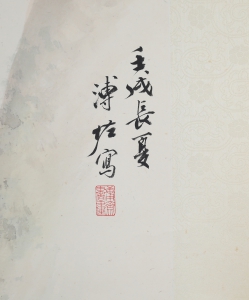 壬戌長夏
溥佐寫